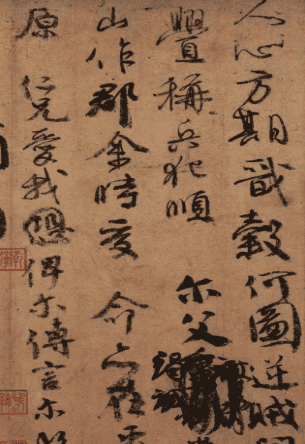 人心方期戩穀何圖逆賊
釁稱兵犯順 尔父
山作郡余時受 命亦在平
原 仁兄愛我 俾尔傳言尔